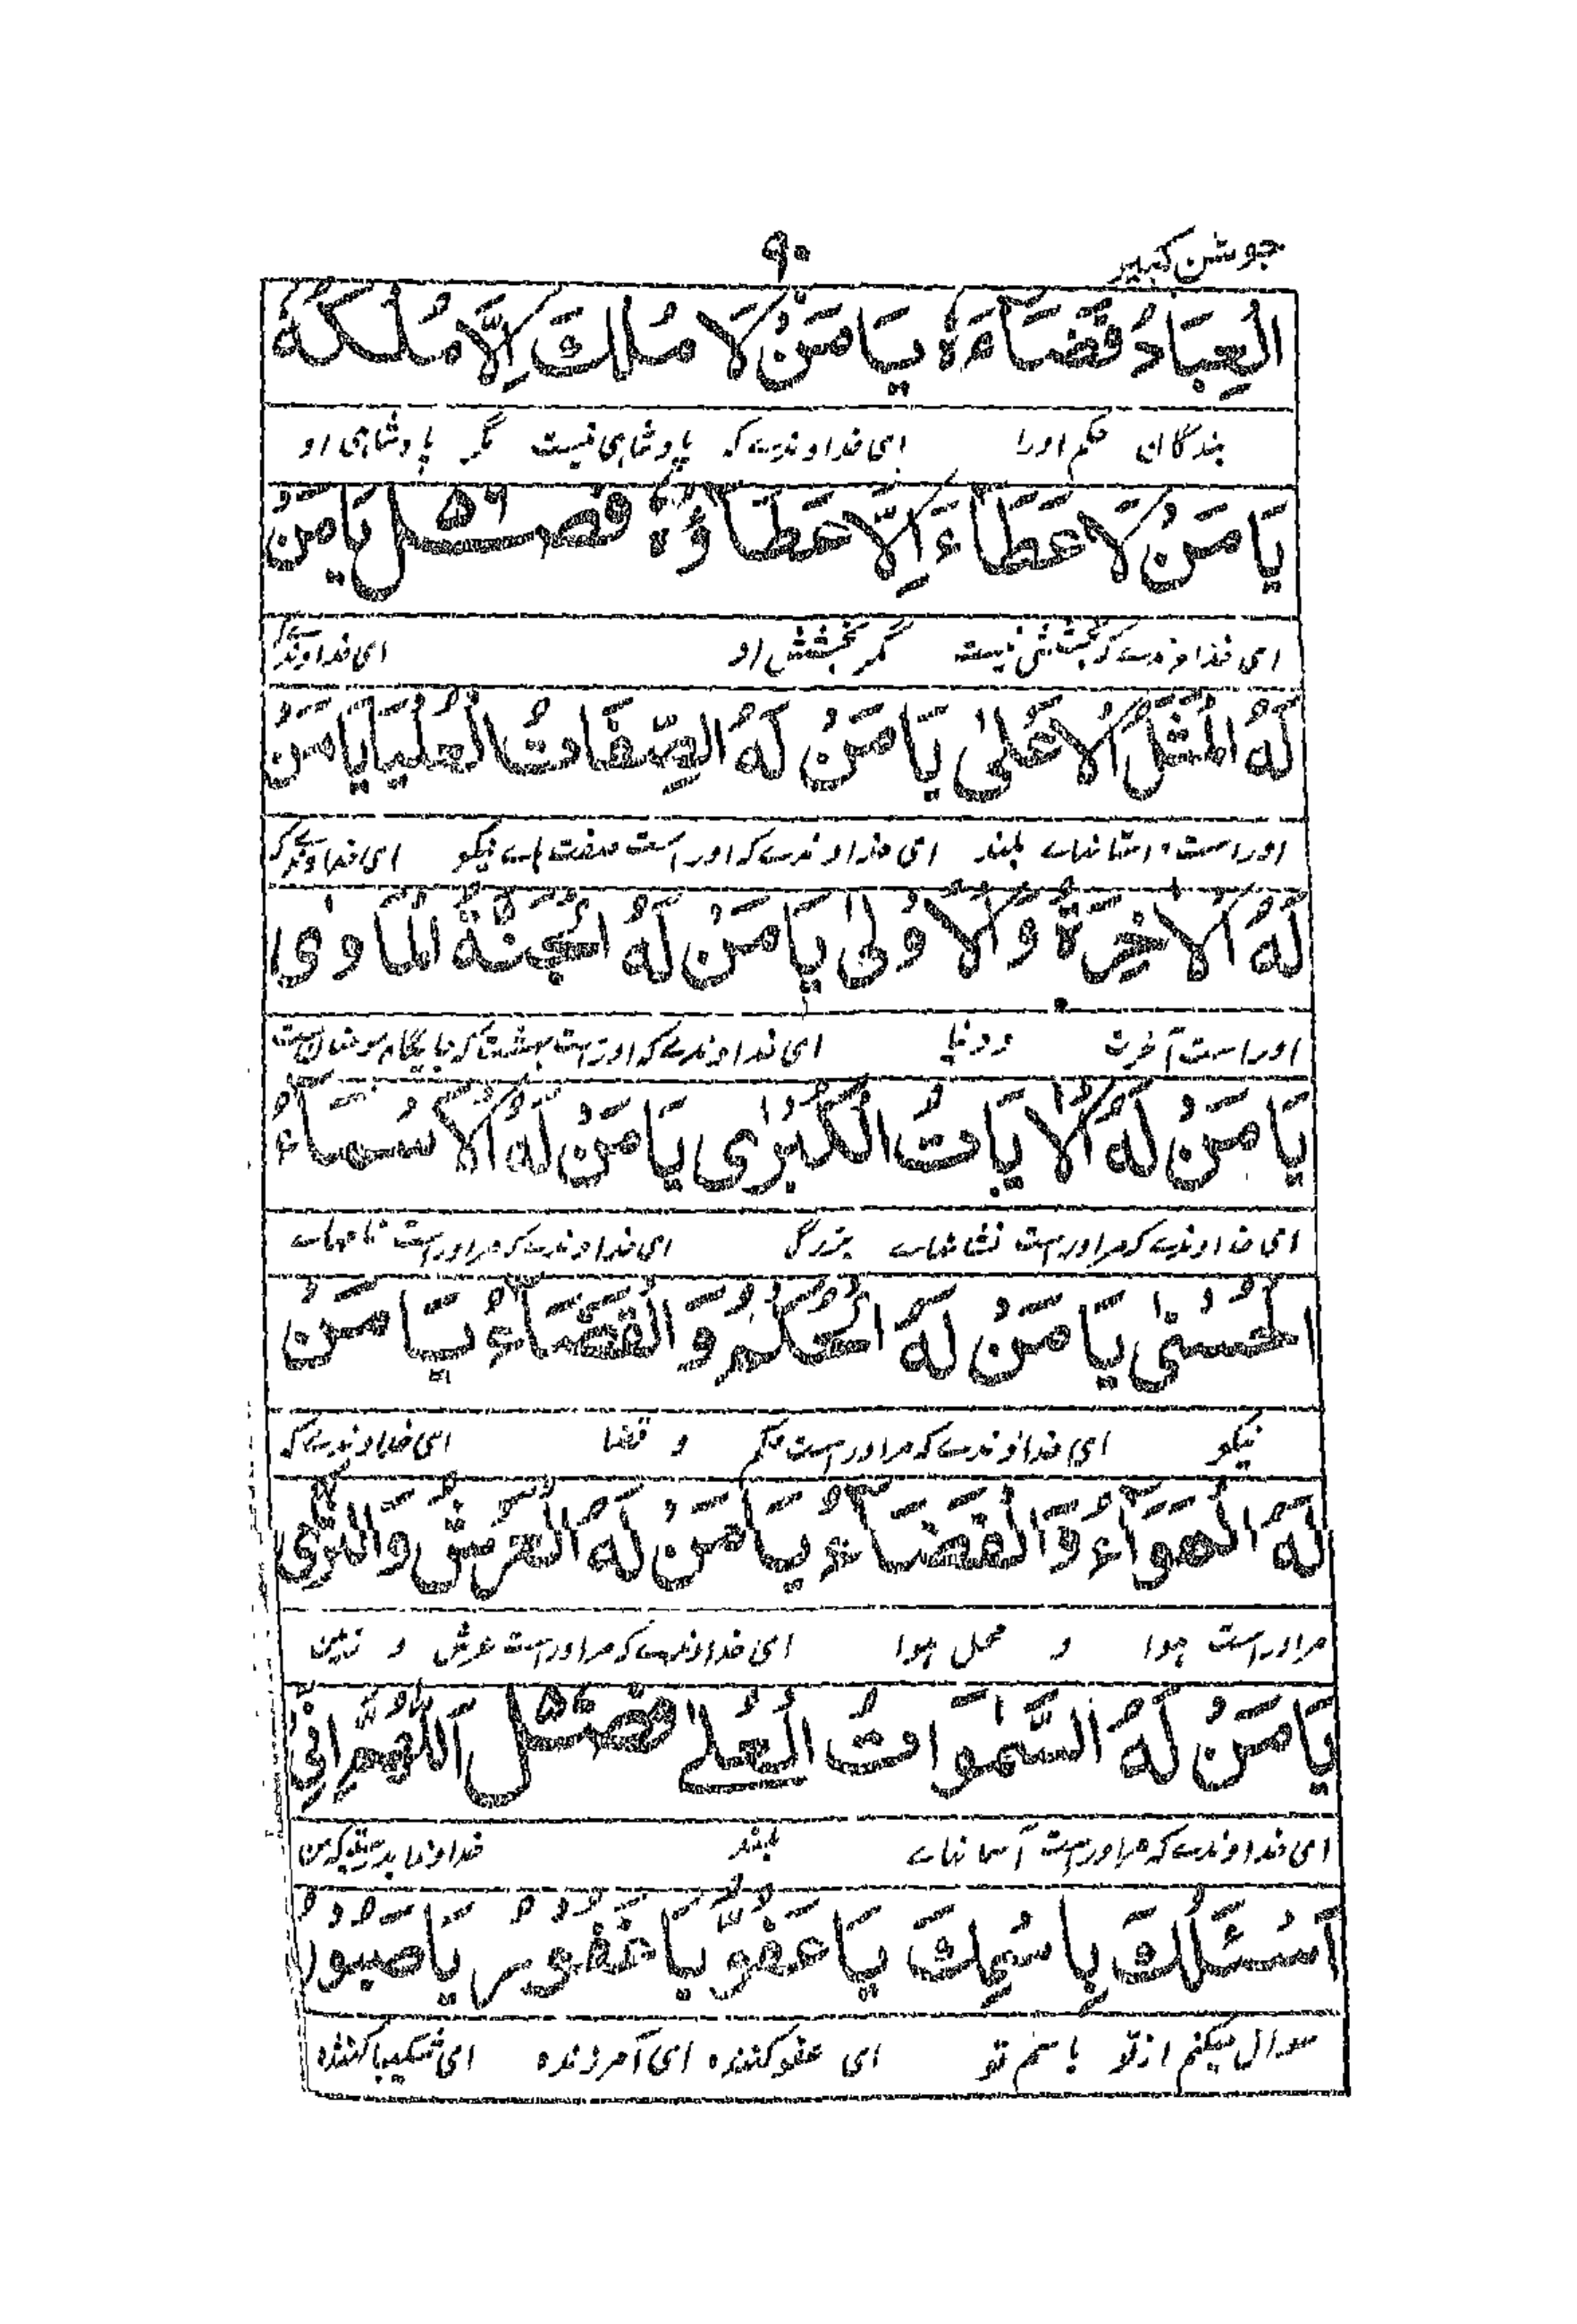 جوشن کبیر
۹۰
الْعِبَادُ قَضَاءَهُ يَا مَنْ لَا مُلْكَ اِلَّا مُلْكُهُ
بندگان حکم اورا ای خداوندے کہ پادشاہی نیست مگر پادشاہی او
يَا مَنْ لَا عَطَاءَ اِلَّا عَطَاؤُهُ فصل ۵۶ يَا مَنْ
ای خداوندے کہ بخششی نیست مگر بخشش او ای خداوندیکہ
لَهُ الْمَثَلُ الْاَعْلٰى يَا مَنْ لَهُ الصِّفَاتُ الْعُلْيَا يَا مَنْ
اوراست بلند ای خداوندے کہ اوراست صفت ہاے نیکو ای خداوندیکہ
لَهُ الْاٰخِرَةُ وَالْاُوْلٰى يَا مَنْ لَهُ الْجَنَّةُ الْمَاْوٰى
اوراست آخرت و دنیا ای خداوندے کہ اوراست بہشت کہ
يَا مَنْ لَهُ الْاٰيَاتُ الْكُبْرٰى يَا مَنْ لَهُ الْاَسْمَاءُ
ای خداوندے کہ مراوراست نشانہاے بزرگ ای خداوندے کہ مراوراست نامہاے
الْحُسْنٰى يَا مَنْ لَهُ الْحُكْمُ وَ الْقَضَاءُ يَا مَنْ
نیکو ای خداوندے کہ مراوراست حکم و قضا ای خداوندے کہ
لَهُ الْهَوَاءُ وَ الْفَضَاءُ يَا مَنْ لَهُ الْعَرْشُ وَالثَّرٰى
مراوراست ہوا و محل ہوا ای خداوندے کہ مراوراست عرش و زمین
يَا مَنْ لَهُ السَّمٰوَاتُ الْعُلٰے فصل ۵۷ اَللّٰهُمَّ اِنِّيْ
ای خداوندے کہ مراوراست آسمانہاے بلند خداوندا بدرستیکہ من
اَسْئَلُكَ بِاسْمِكَ يَا عَفُوُّ يَا غَفُوْرُ يَا صَبُوْرُ
سوال میکنم از تو باسم تو ای عفو کنندہ ای آمرزندہ ای شکیبا کنندہ